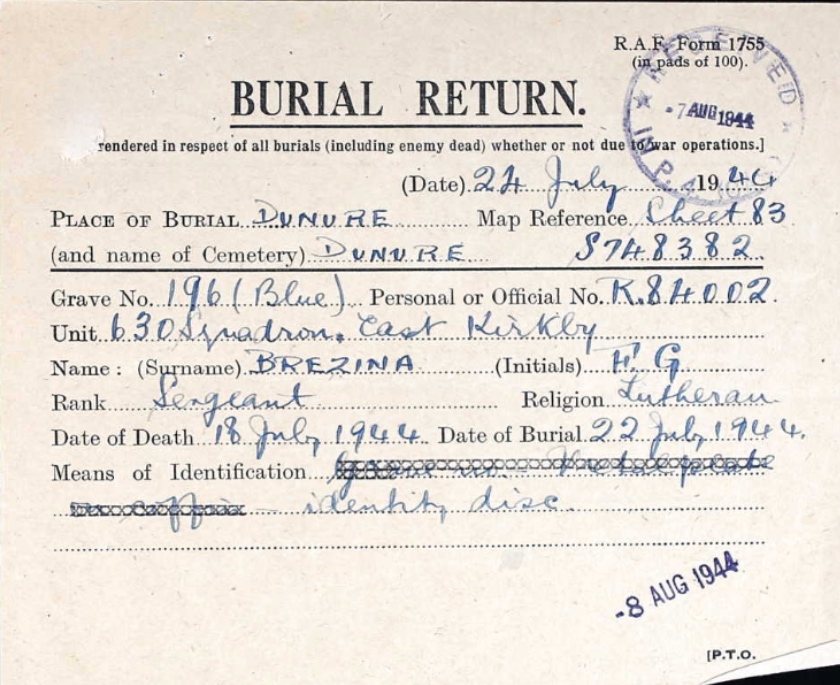 R.A.F. Form 1755
(in pads of 100).
RECEIVED
-7 AUG 1944
IN P.4
BURIAL RETURN.
rendered in respect of all burials (including enemy dead) whether or not due to war operations.]
(Date) 24 July 1944
PLACE OF BURIAL DUNURE Map Reference Sheet 83
(and name of Cemetery) DUNURE S748382
Grave No. 196 (Blue) Personal or Official No. R.84002
Unit 630 Squadron. East Kirkby
Name: (Surname) BREZINA (Initials) F. G
Rank Sergeant Religion Lutheran
Date of Death 18 July 1944 Date of Burial 22 July 1944.
Means of Identification
identity disc
-8 AUG 1944
[P.T.O.